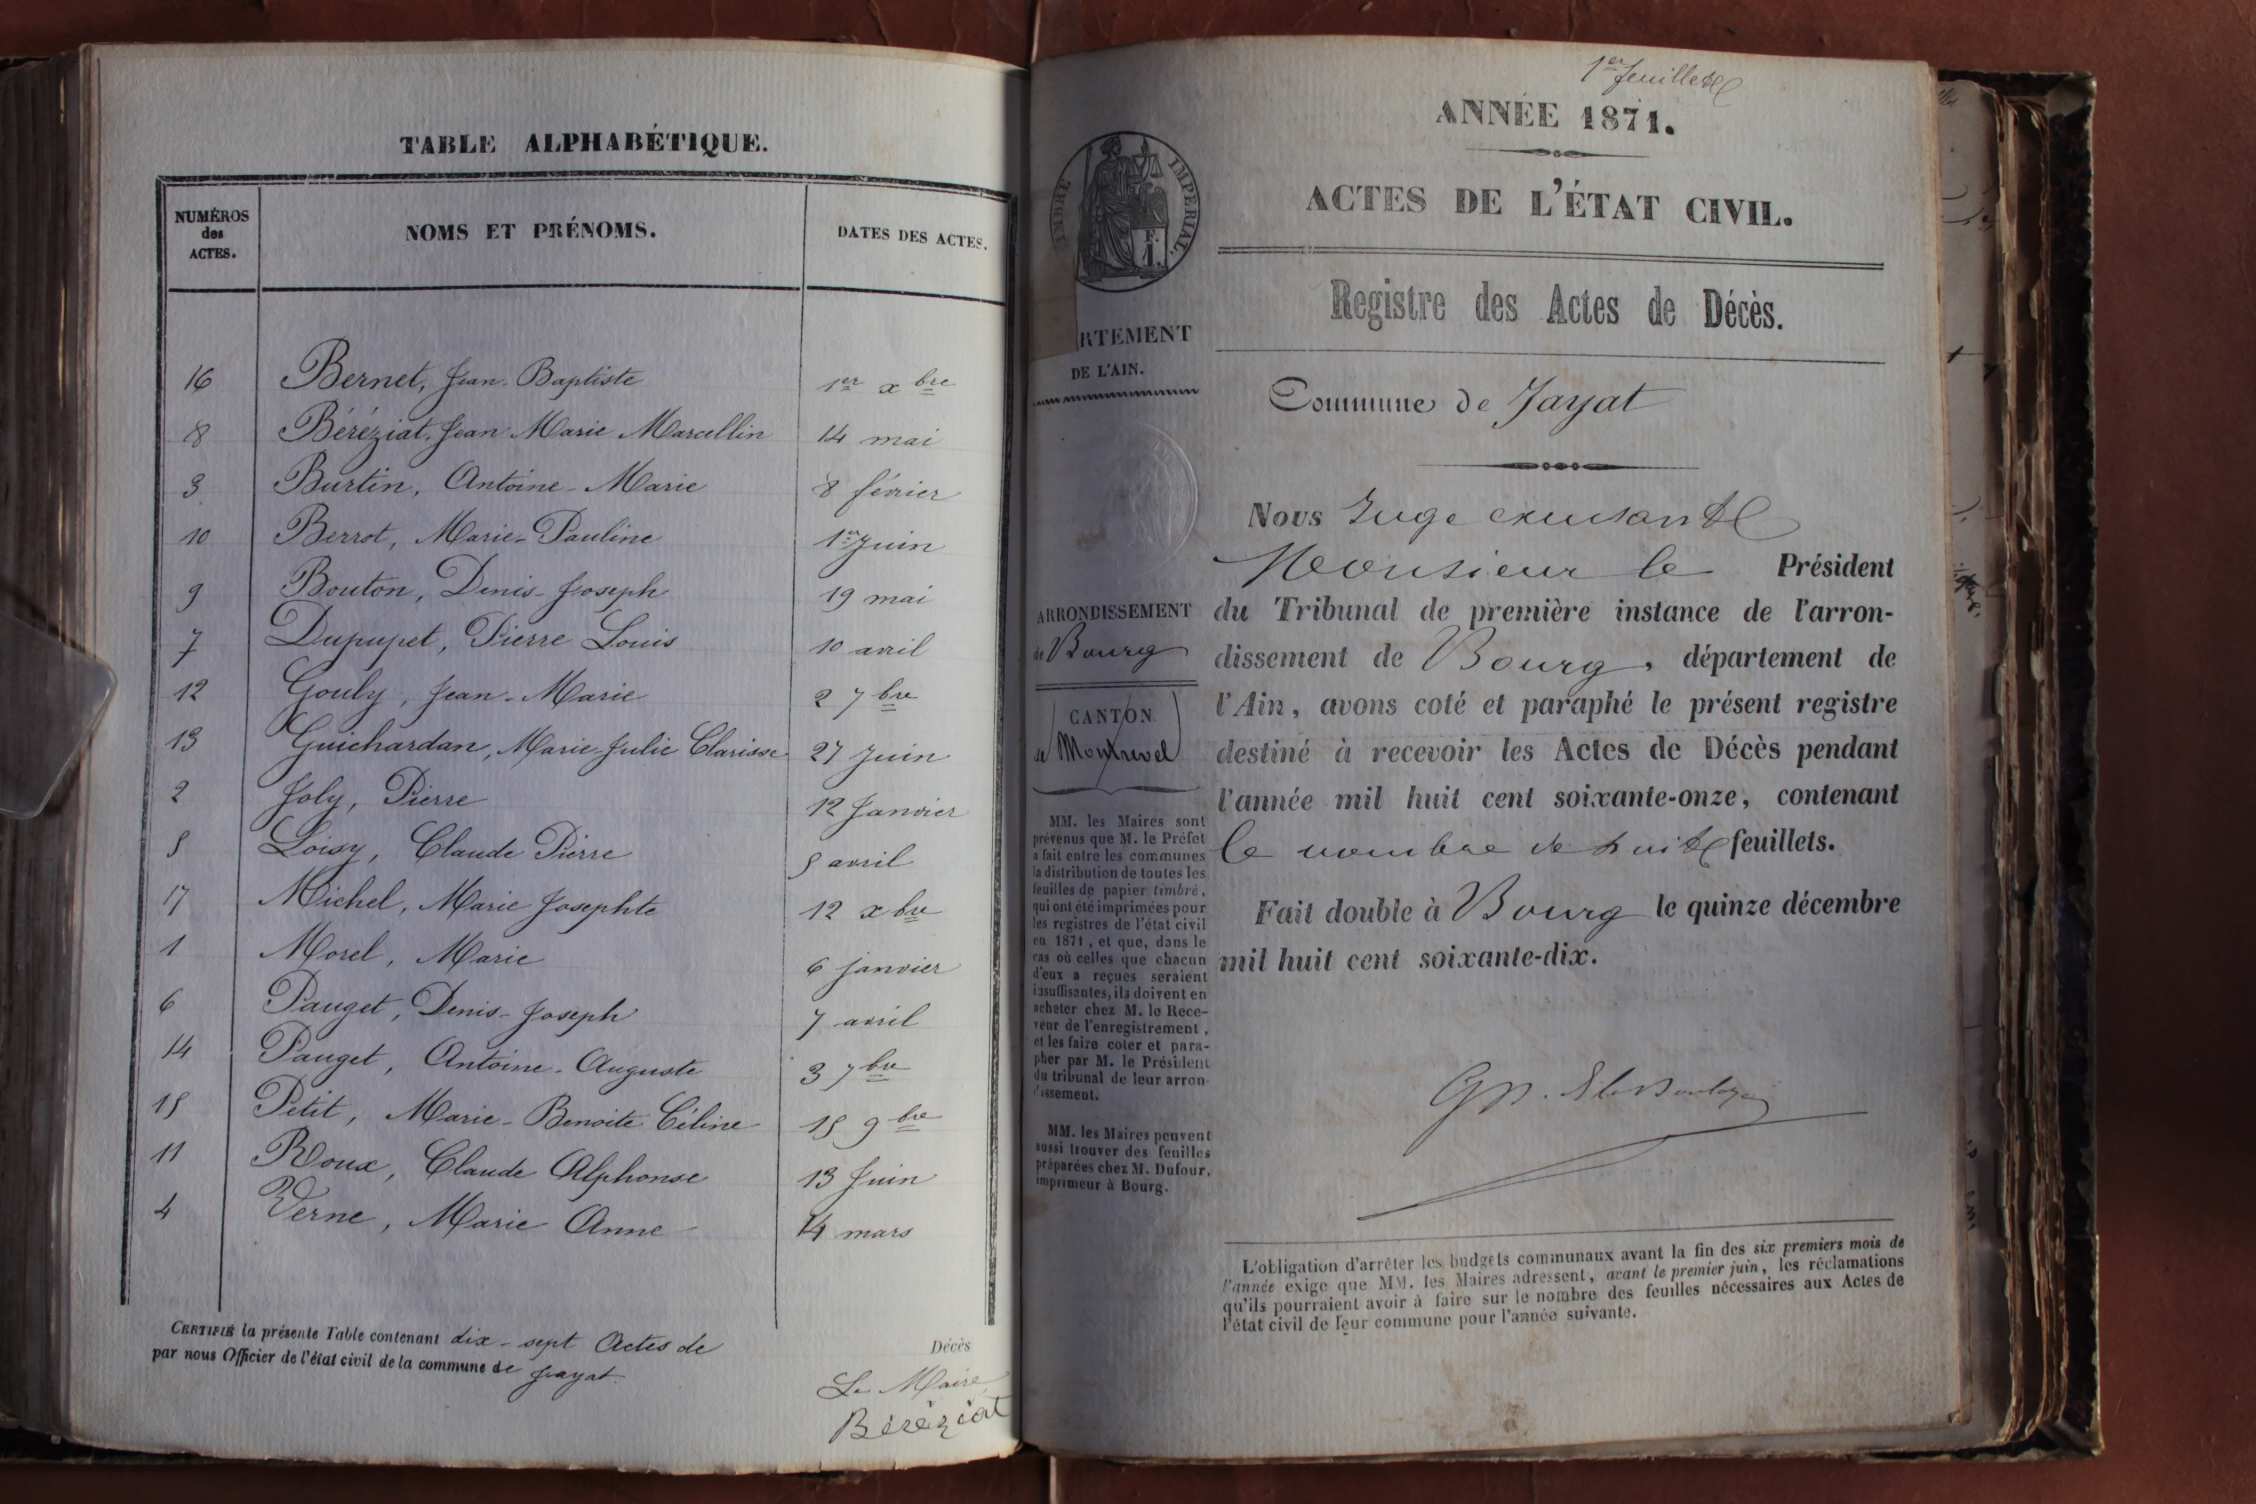 TABLE ALPHABÉTIQUE.
NUMÉROS des ACTES. NOMS ET PRÉNOMS. DATES DES ACTES.
16 Bernet, Jean-Baptiste 1er xbre
8 Béréziat, Jean Marie Marcellin 14 mai
3 Burtin, Antoine-Marie 8 février
10 Berrot, Marie-Pauline 1er Juin
9 Bouton, Denis-Joseph 19 mai
7 Dupupet, Pierre Louis 10 avril
12 Gouly, Jean-Marie 2 7bre
13 Guichardan, Marie Julie Clarisse 27 Juin
2 Joly, Pierre 12 Janvier
5 Loisy, Claude Pierre 5 avril
17 Michel, Marie Josephte 12 xbre
1 Morel, Marie 6 janvier
6 Pauget, Denis-Joseph 7 avril
14 Pauget, Antoine-Auguste 3 7bre
15 Petit, Marie-Benoite Céline 15 9bre
11 Roux, Claude Alphonse 13 Juin
4 Verne, Marie Anne 14 mars
CERTIFIÉ la présente Table contenant dix-sept Actes de Décès
par nous Officier de l'état civil de la commune de Jayat.
Le Maire,
Béréziat
1er feuillet
ANNÉE 1871.
ACTES DE L'ÉTAT CIVIL.
Registre des Actes de Décès.
Commune de Jayat
Nous Juge
Monsieur le Président
du Tribunal de première instance de l'arron-
dissement de Bourg, département de
l'Ain, avons coté et paraphé le présent registre
destiné à recevoir les Actes de Décès pendant
l'année mil huit cent soixante-onze, contenant
le nombre de huit feuillets.
Fait double à Bourg le quinze décembre
mil huit cent soixante-dix.
L'obligation d'arrêter les budgets communaux avant la fin des six premiers mois de
l'année exige que MM. les Maires adressent, avant le premier juin, les réclamations
qu'ils pourraient avoir à faire sur le nombre des feuilles nécessaires aux Actes de
l'état civil de leur commune pour l'année suivante.
TIMBRE IMPÉRIAL.
F.
1.
RTEMENT
DE L'AIN.
ARRONDISSEMENT
de Bourg
CANTON
de Montrevel
MM. les Maires sont
prévenus que M. le Préfet
a fait entre les communes
la distribution de toutes les
feuilles de papier timbré,
qui ont été imprimées pour
les registres de l'état civil
en 1871, et que, dans le
cas où celles que chacun
d'eux a reçues seraient
insuffisantes, ils doivent en
acheter chez M. le Rece-
veur de l'enregistrement,
et les faire coter et para-
pher par M. le Président
du tribunal de leur arron-
dissement.
MM. les Maires peuvent
aussi trouver des feuilles
préparées chez M. Dufour,
imprimeur à Bourg.